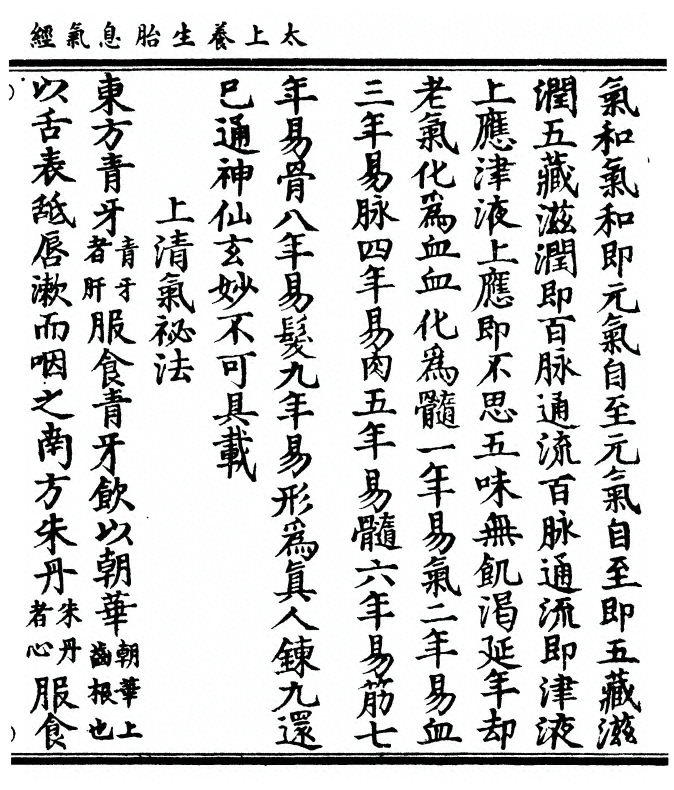 太上養生胎息氣經
氣和氣和即元氣自至元氣自至即五藏滋
潤五藏滋潤即百脉通流百脉通流即津液
上應津液上應即不思五味無飢渴延年却
老氣化爲血血化爲髓一年易氣二年易血
三年易脉四年易肉五年易髓六年易筋七
年易骨八年易髮九年易形爲眞人鍊九還
已通神仙玄妙不可具載
上清氣祕法
東方青牙青牙者肝服食青牙飲以朝華朝華上齒根也
以舌表舐唇漱而咽之南方朱丹朱丹者心服食